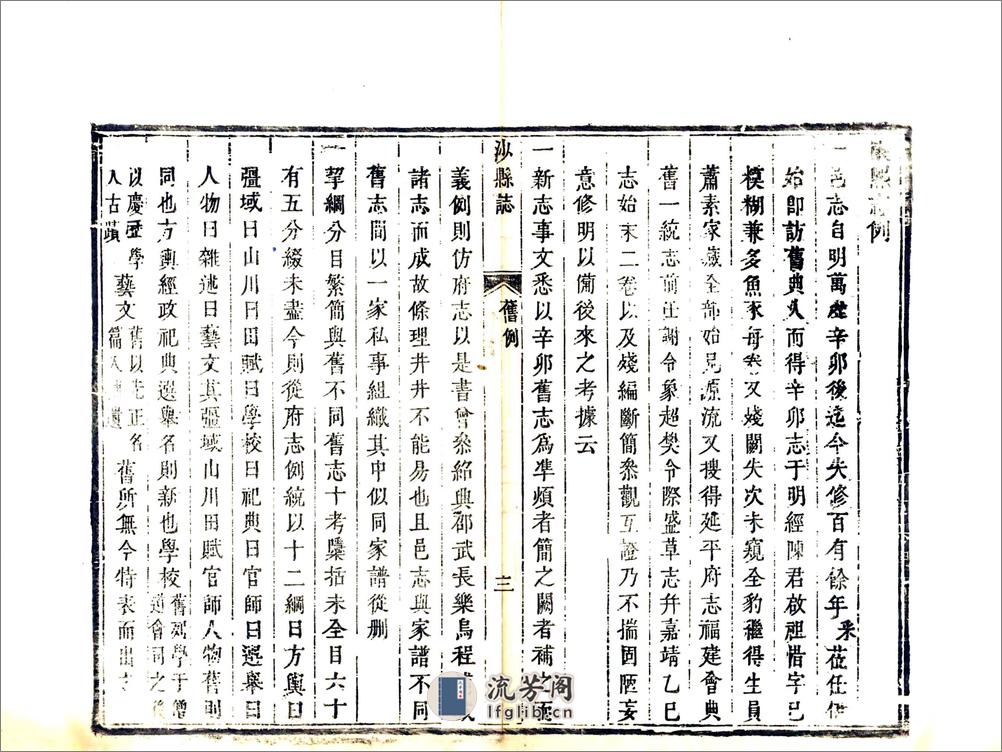 康熙志例
一邑志自明萬曆辛卯後迄今失修百有餘年采莅任伊
始卽訪舊典久而得辛卯志于明經陳君啟祖惜字已
模糊兼多魚豕每卷又殘闕失次未窺全豹繼得生員
蕭素家藏全部始見源流又搜得延平府志福建會典
舊一統志前任謝令象超樊令際盛草志幷嘉靖乙巳
志始末二卷以及殘編斷簡叅觀互證乃不揣固陋妄
意修明以備後來之考據云
一新志事文悉以辛卯舊志爲準煩者簡之闕者補之
沙縣誌 舊例 三
義例則仿府志以是書曾叅紹興邵武長樂烏程
諸志而成故條理井井不能易也且邑志與家譜不同
舊志間以一家私事組織其中似同家譜從删
一挈綱分目繁簡與舊不同舊志十考櫽括未全目六十
有五分綴未盡今則從府志例統以十二綱曰方輿曰
疆域曰山川曰田賦曰學校曰祀典曰官師曰選舉曰
人物曰雜述曰藝文其疆域山川田賦官師人物舊則
同也方輿經政祀典選舉名則新也學校舊列學于僧道會同之後
以慶 學藝文舊以先正名篇入 遺舊所無今特表而出
入古蹟
流芳阁
lfglib.cn